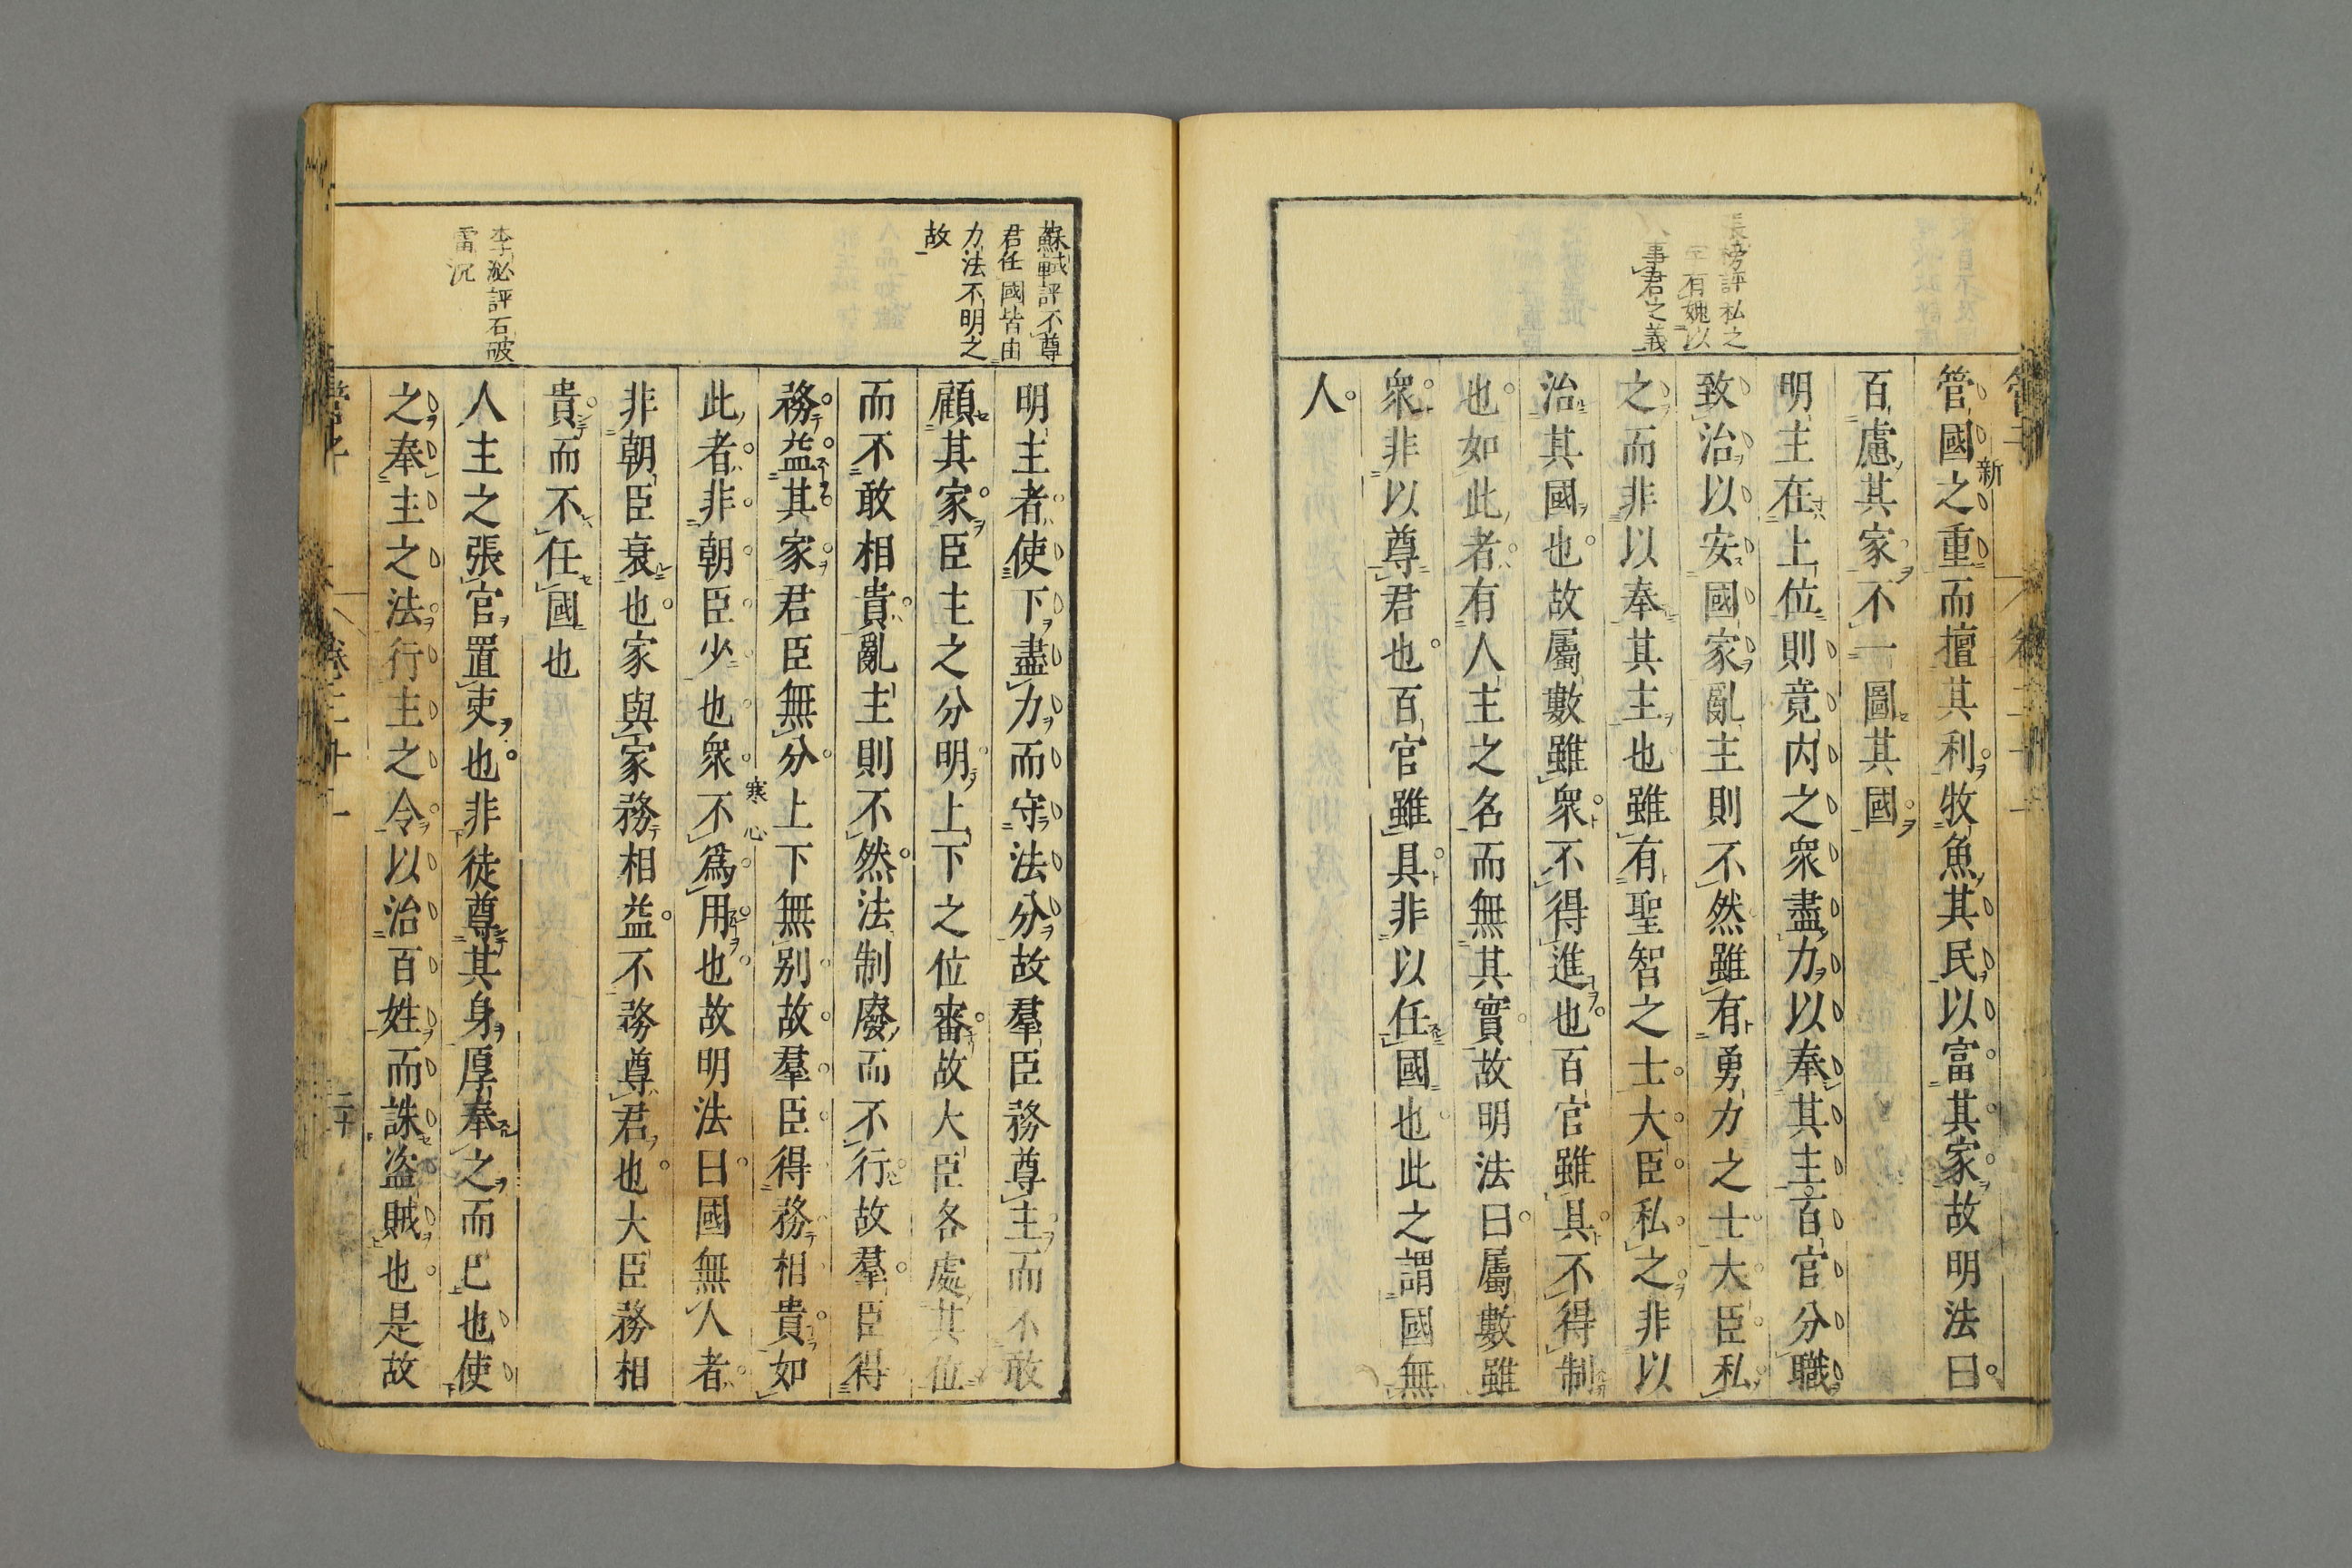 管國之重而擅其利牧魚其民以富其家故明法曰
百慮其家不一圖其國
明主在上位則竟内之衆盡力以奉其主百官分職
致治以安國家亂主則不然雖有勇力之士大臣私
之而非以奉其主也雖有聖智之士大臣私之非以
治其國也故屬數雖衆不得進也百官雖具不得制
也如此者有人主之名而無其實故明法曰屬數雖
衆非以尊君也百官雖具非以任國也此之謂國無
人
新
榜評私之
字有媿以
事君之義
蘇軾評不尊
君任國皆由
力法不明之
故
明主者使下盡力而守法分故羣臣務尊主而不敢
顧其家臣主之分明上下之位審故大臣各處其位
而不敢相貴亂主則不然法制廢而不行故羣臣得
務益其家君臣無分上下無别故羣臣得務相貴如
此者非朝臣少也衆不爲用也故明法曰國無人者
寒心
非朝臣衰也家與家務相益不務尊君也大臣務相
貴而不任國也
李泌評石破
雷沉
人主之張官置吏也非徒尊其身厚奉之而已也使
之奉主之法行主之令以治百姓而誅盗賊也是故
卷二十一
二十